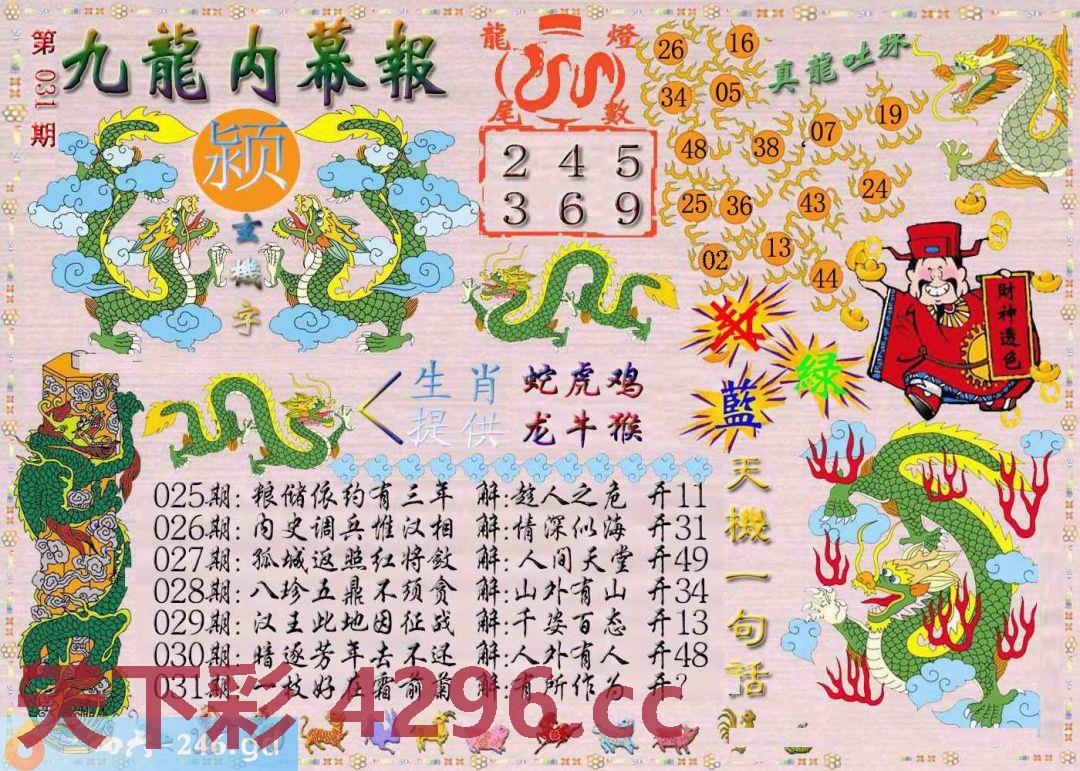 第031期
九龍內幕報
颍
玄機字
龍燈
尾數
2 4 5
3 6 9
真龍吐珠
26 16
34 05
48 38 07 19
25 36 43 24
02 13 44
財神透色
红
绿
藍
生肖 蛇虎鸡
提供 龙牛猴
天機一句話
025期: 粮储依约有三年 解:趁人之危 开11
026期: 内史调兵惟汉相 解:情深似海 开31
027期: 孤城返照红将敛 解:人间天堂 开49
028期: 八珍五鼎不须贪 解:山外有山 开34
029期: 汉王此地因征战 解:千姿百态 开13
030期: 暗逐芳年去不还 解:人外有人 开48
031期: 一枝好在霜前菊 解:有所作为 开?
天下彩 4296.cc
246.gd